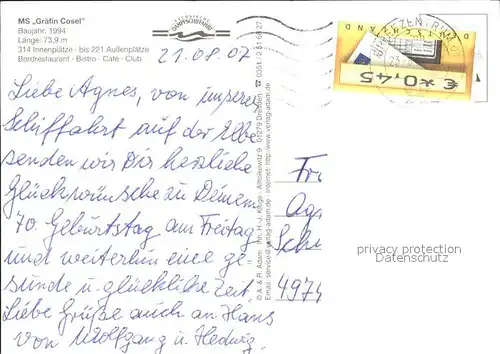 MS „Gräfin Cosel"
Baujahr: 1994
Länge: 73,9 m
314 Innenplätze · bis 221 Außenplätze
Bordrestaurant · Bistro · Café · Club
SÄCHSISCHE
DAMPFSCHIFFAHRT
21.08.07
Liebe Agnes, von unserer
Schiffahrt auf der Elbe
senden wir Dir herzliche
Glückwünsche zu Deinem
70. Geburtstag am Freitag
und weiterhin eine ge-
sunde u. glückliche Zeit.
Liebe Grüße auch an Hans
von Wolfgang u. Hedwig.
© A. & R. Adam · Inh. H.-J. Kaige · Altnickern 9 · 01279 Dresden ☎ 0351 / 2 51 66 27
Email: service@verlag-adam.de · Internet: http://www.verlag-adam.de
BRIEFZENTRUM
€*0,45
Fr
Ag
Sch
4974
privacy protection
Datenschutz